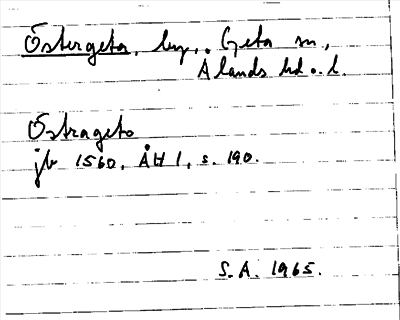 Östergeta, by, Geta sn,
Ålands hd o. l.
Östrageto
jb 1560, ÅH 1, s. 190.
S. A. 1965.